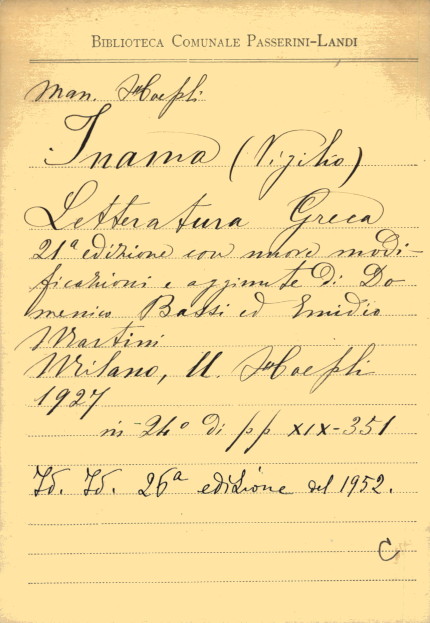 BIBLIOTECA COMUNALE PASSERINI-LANDI
Man. Hoepli
Inama (Vigilio)
Letteratura Greca
21ª edizione con nuove modi-
ficazioni e aggiunte di Do
menico Bassi ed Emidio
Martini
Milano, U. Hoepli
1927
in-24° di pp XIX-351
Id. Id. 26ª edizione del 1952.
C